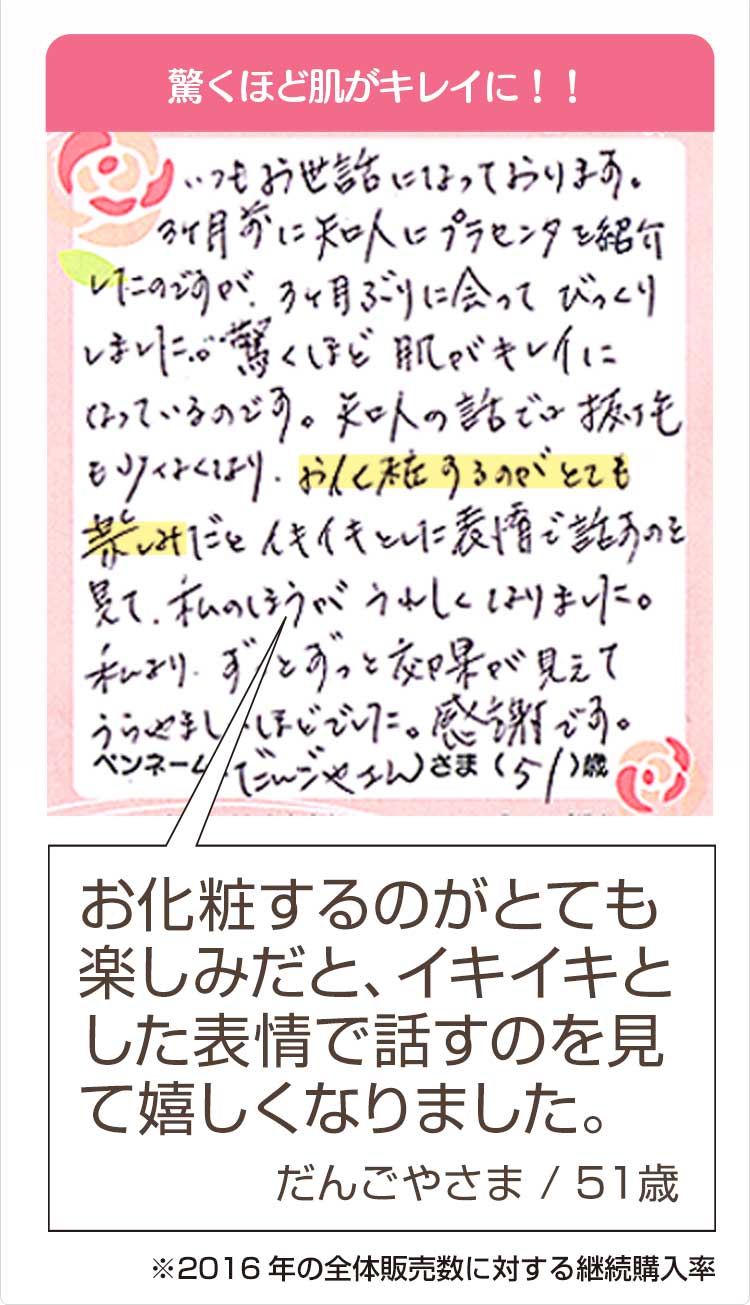 驚くほど肌がキレイに！！
いつもお世話になっております。
3ヶ月前に知人にプラセンタを紹介
したのですが、3ヶ月ぶりに会って びっくり
しました。驚くほど 肌がキレイに
なっているのです。知人の話では 抜け毛
も少なくなり、お化粧するのがとても
楽しみだと イキイキとした表情で話すのを
見て、私のほうが うれしくなりました。
私より、ずっとずっと効果が見えて
うらやましいほどでした。感謝です。
ペンネーム だんごやさん）さま（51）歳
お化粧するのがとても
楽しみだと、イキイキと
した表情で話すのを見
て嬉しくなりました。
だんごやさま / 51歳
※2016年の全体販売数に対する継続購入率